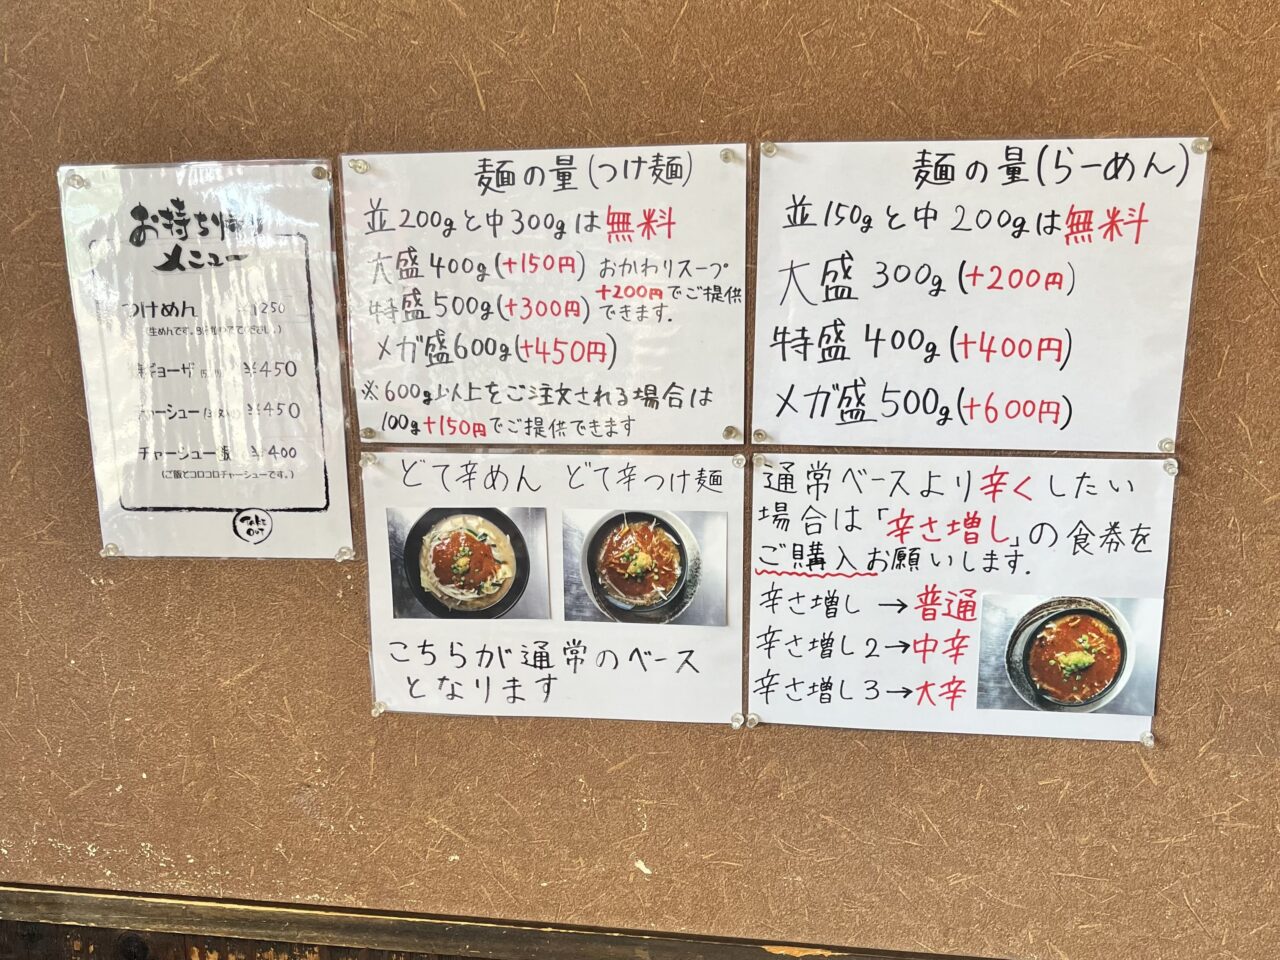 お持ち帰り
メニュー
つけめん ¥1250
ギョーザ ¥450
チャーシュー ¥450
チャーシュー飯 ¥400
(ご飯とコロコロチャーシューです。)
Take
Out
麺の量(つけ麺)
並200gと中300gは無料
大盛400g(+150円)
特盛500g(+300円)
おかわりスープ
+200円でご提供
できます.
メガ盛600g(+450円)
※600g以上をご注文される場合は
100g+150円でご提供できます
麺の量(らーめん)
並150gと中200gは無料
大盛300g(+200円)
特盛400g(+400円)
メガ盛500g(+600円)
どて辛めん どて辛つけ麺
こちらが通常のベース
となります
通常ベースより辛くしたい
場合は「辛さ増し」の食券を
ご購入お願いします.
辛さ増し→普通
辛さ増し2→中辛
辛さ増し3→大辛